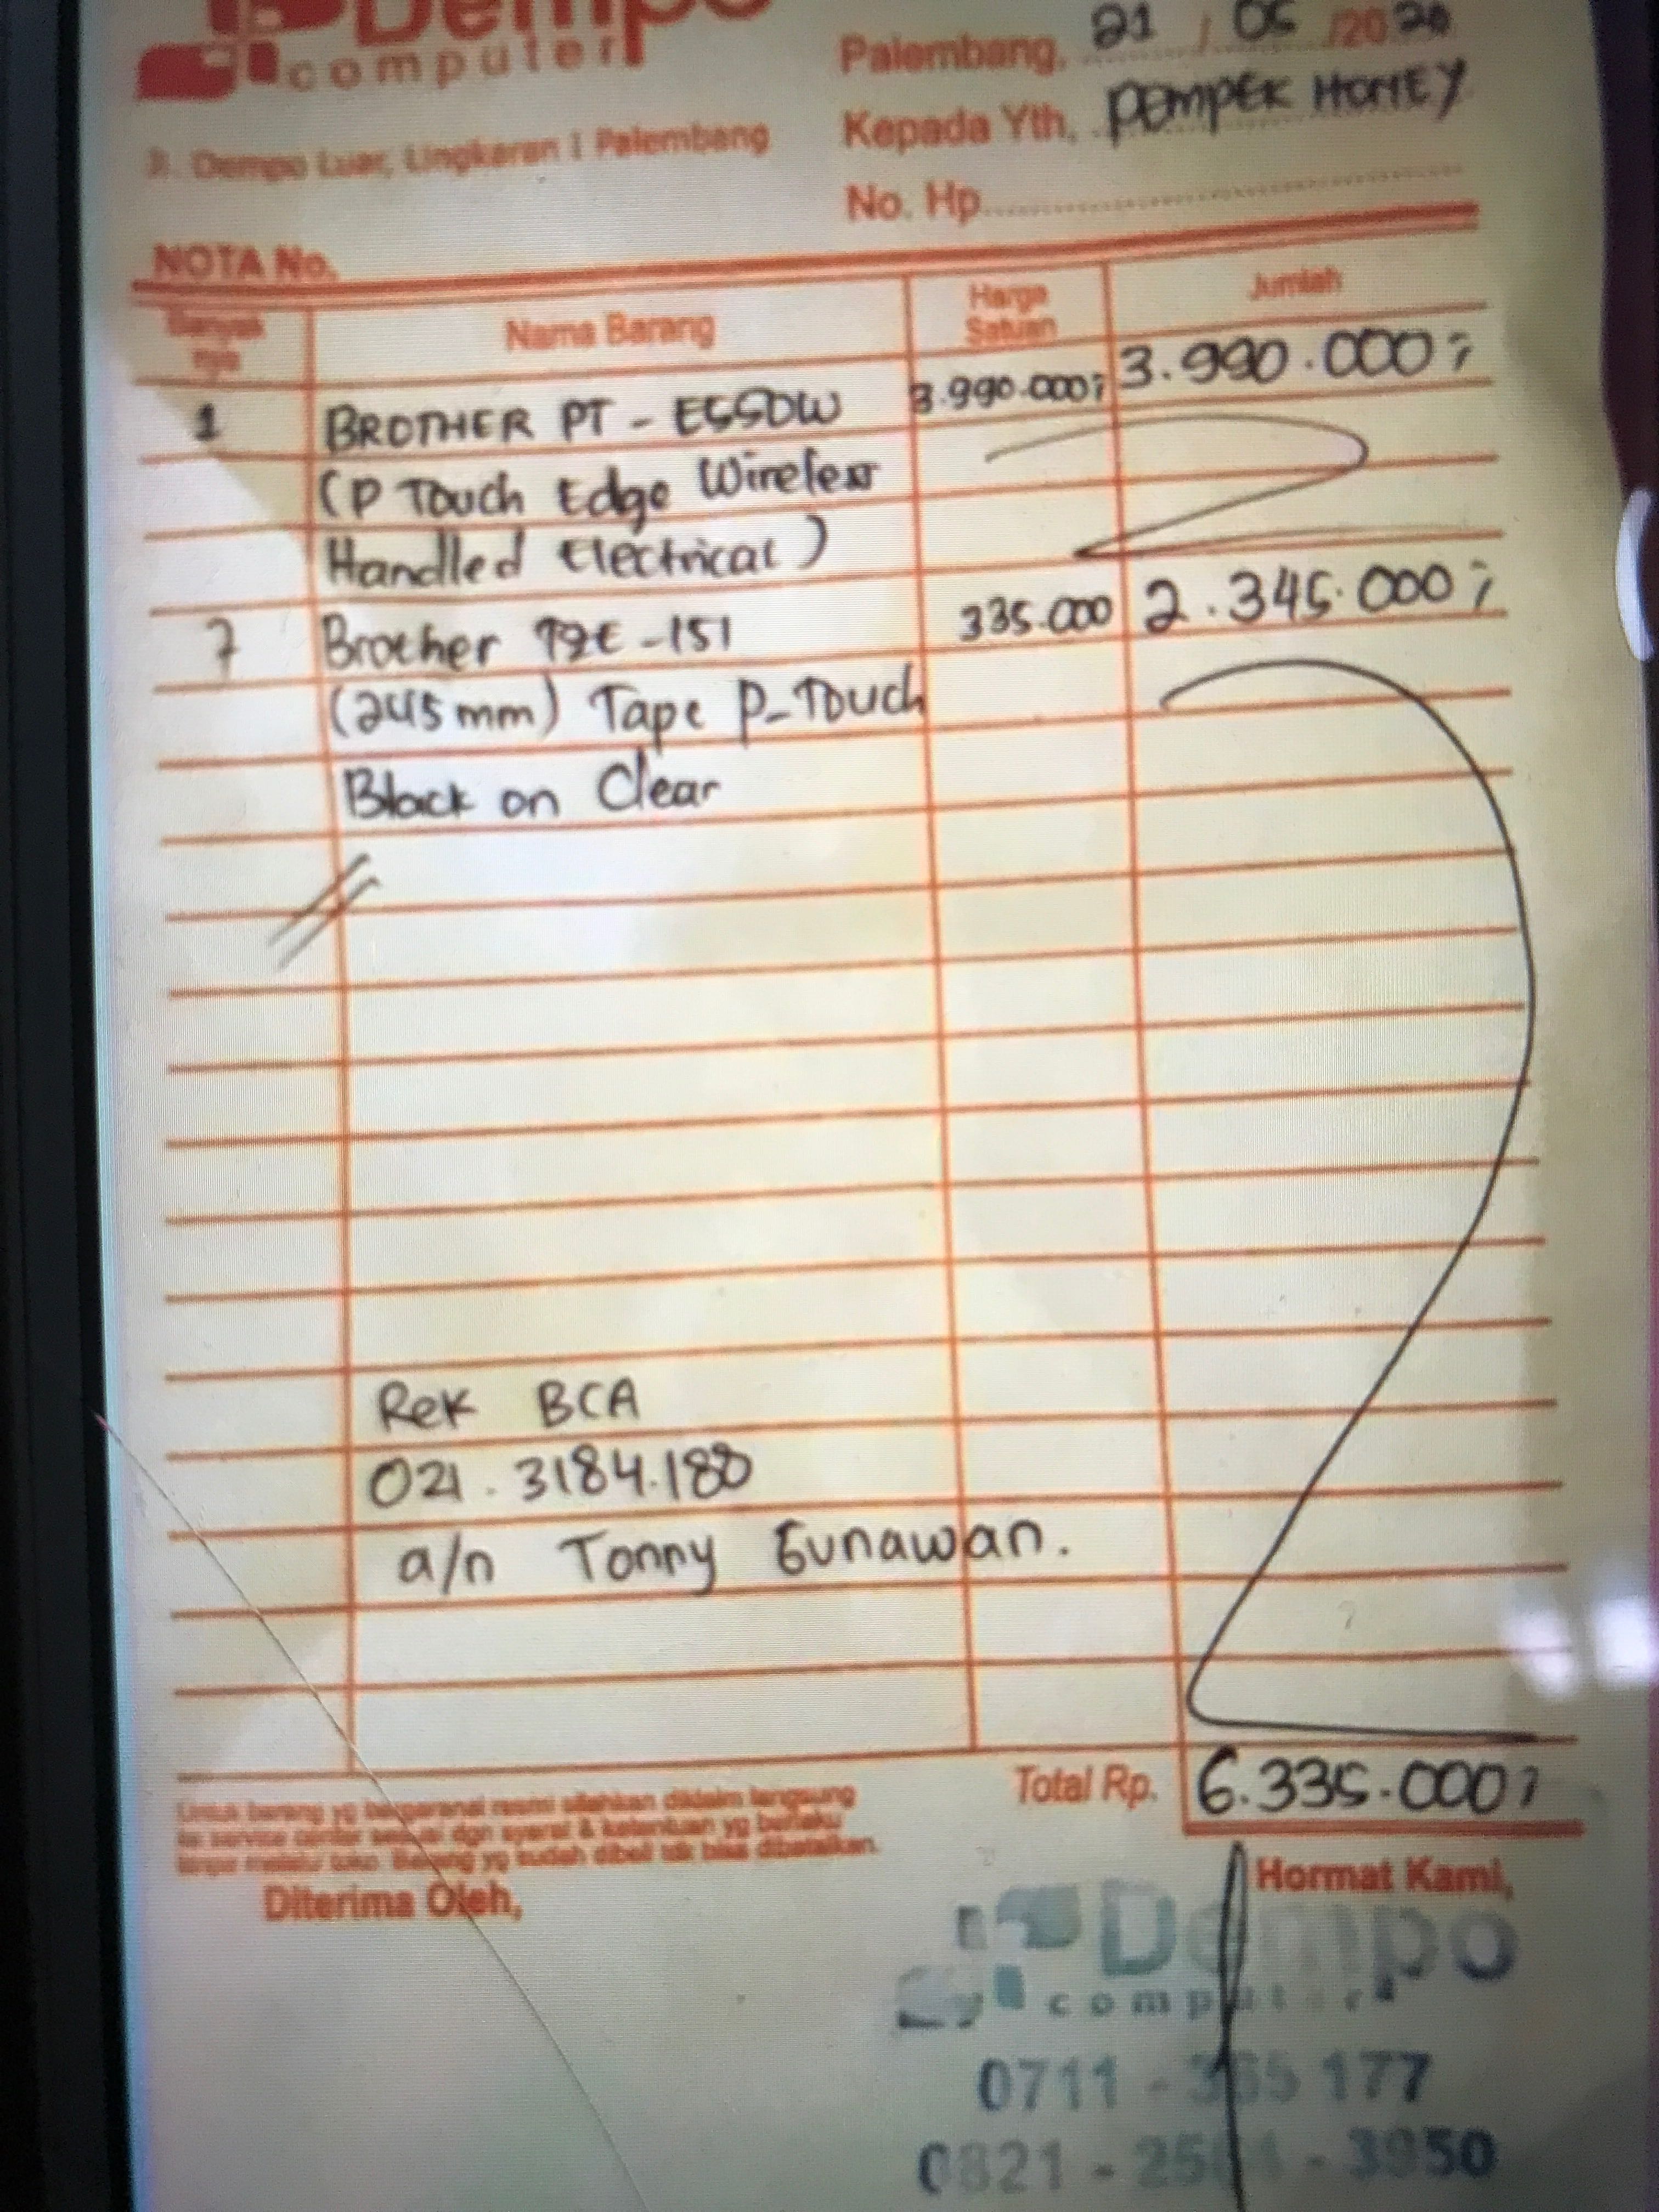 Dempo
computer
Palembang, 21 / 05 /2020
Jl. Dempo Luar, Lingkaran I Palembang
Kepada Yth, PEMPEK HONEY
No. Hp
NOTA No.
Banyak nya Nama Barang Harga Satuan Jumlah
1 BROTHER PT - E550W 3.990.000; 3.990.000;
(P Touch Edge Wireless
Handled Electrical)
7 Brother TZE -151 335.000 2.345.000;
(245mm) Tape P-Touch
Black on Clear
Rek BCA
021.3184.180
a/n Tonny Gunawan.
Total Rp. 6.335.000,
Untuk barang yg bergaransi resmi silahkan diklaim langsung
ke service center sesuai dgn syarat & ketentuan yg berlaku
tanpa melalui toko. Barang yg sudah dibeli tdk bisa dibatalkan.
Diterima Oleh,
Hormat Kami,
Dempo
computer
0711 - 365 177
0821 - - 3950